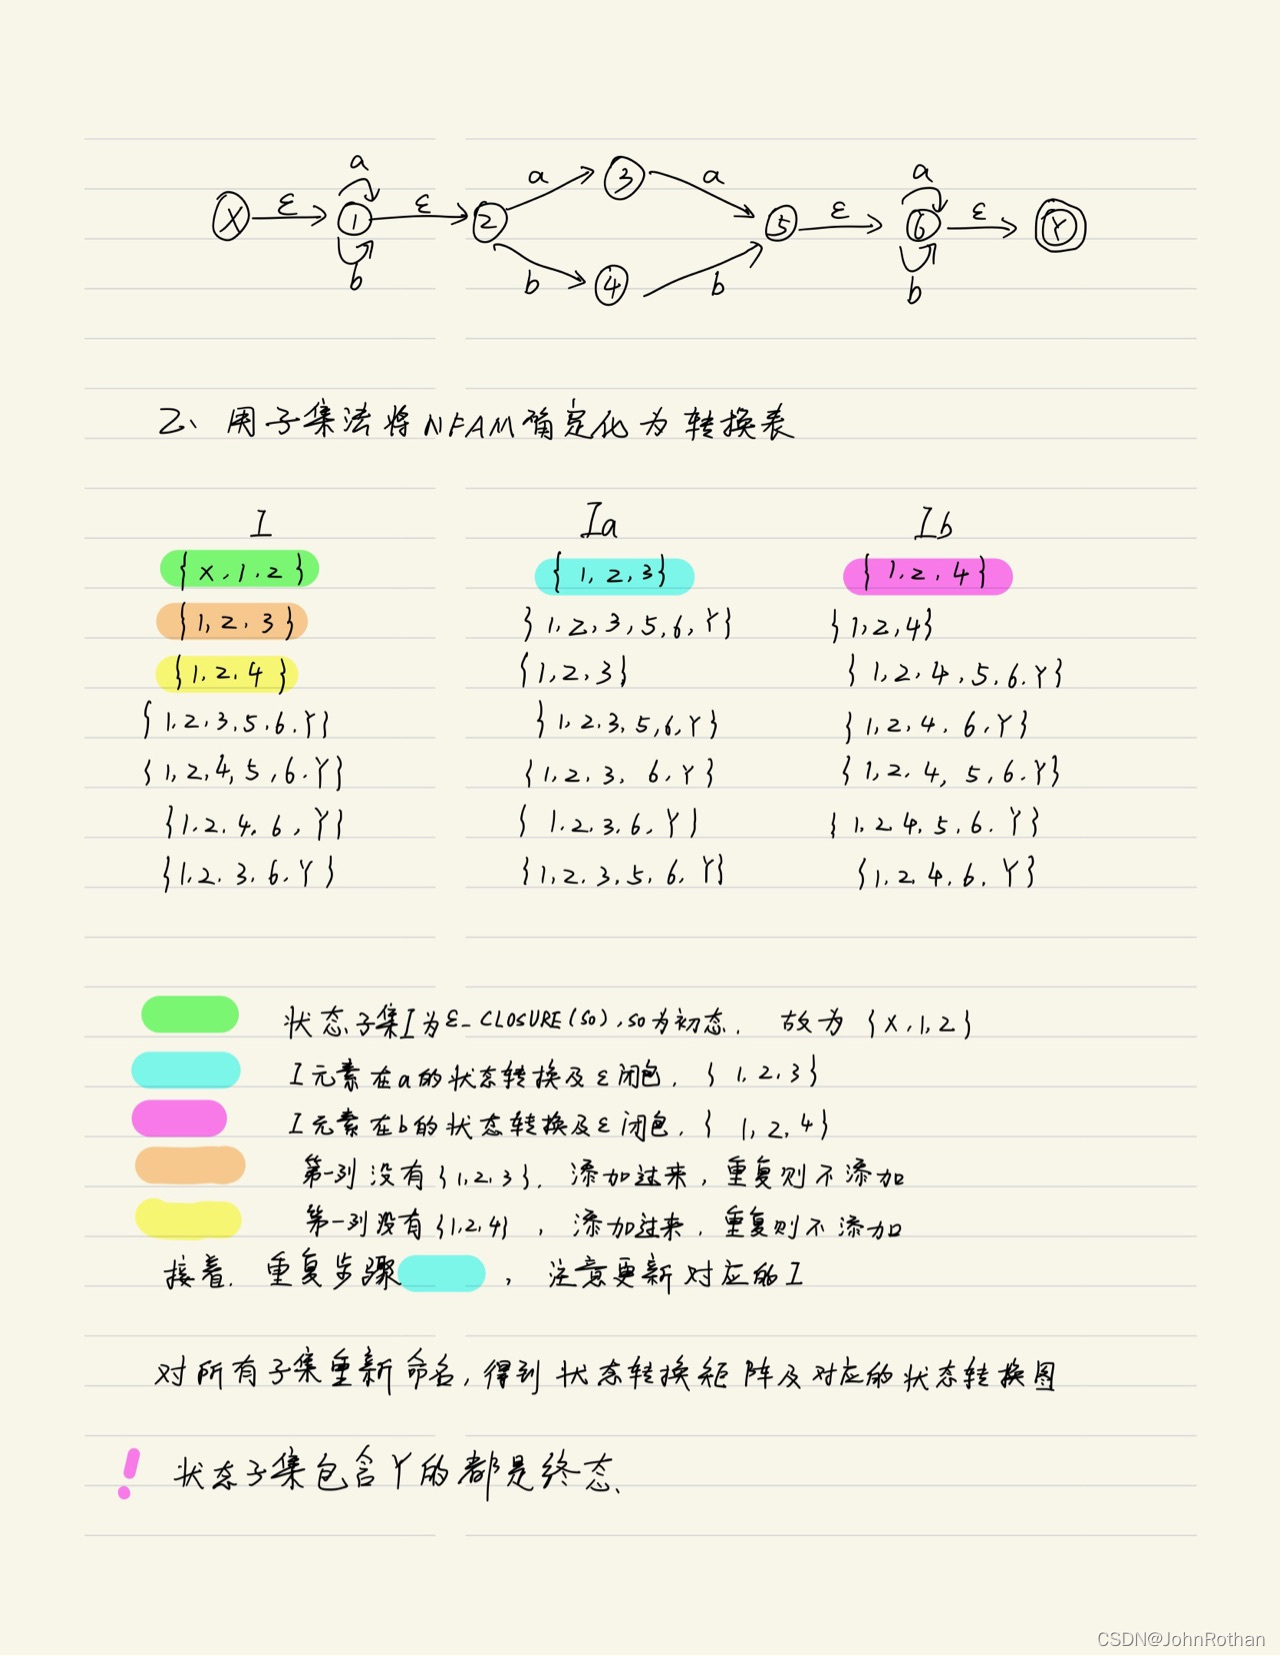 a a a
X ε 1 ε 2 a 3 a 5 ε 6 ε Y
b b 4 b b
2、用子集法将NFAM确定化为转换表
I Ia Ib
{X,1,2} {1,2,3} {1,2,4}
{1,2,3} {1,2,3,5,6,Y} {1,2,4}
{1,2,4} {1,2,3} {1,2,4,5,6,Y}
{1,2,3,5,6,Y} {1,2,3,5,6,Y} {1,2,4,6,Y}
{1,2,4,5,6,Y} {1,2,3,6,Y} {1,2,4,5,6,Y}
{1,2,4,6,Y} {1,2,3,6,Y} {1,2,4,5,6,Y}
{1,2,3,6,Y} {1,2,3,5,6,Y} {1,2,4,6,Y}
状态子集I为ε_CLOSURE(S0),S0为初态. 故为{X,1,2}
I元素在a的状态转换及ε闭包.{1,2,3}
I元素在b的状态转换及ε闭包.{1,2,4}
第一列没有{1,2,3}. 添加过来,重复则不添加
第一列没有{1,2,4}, 添加过来,重复则不添加
接着. 重复步骤 , 注意更新对应的I
对所有子集重新命名,得到状态转换矩阵及对应的状态转换图
! 状态子集包含Y的都是终态、
CSDN@JohnRothan